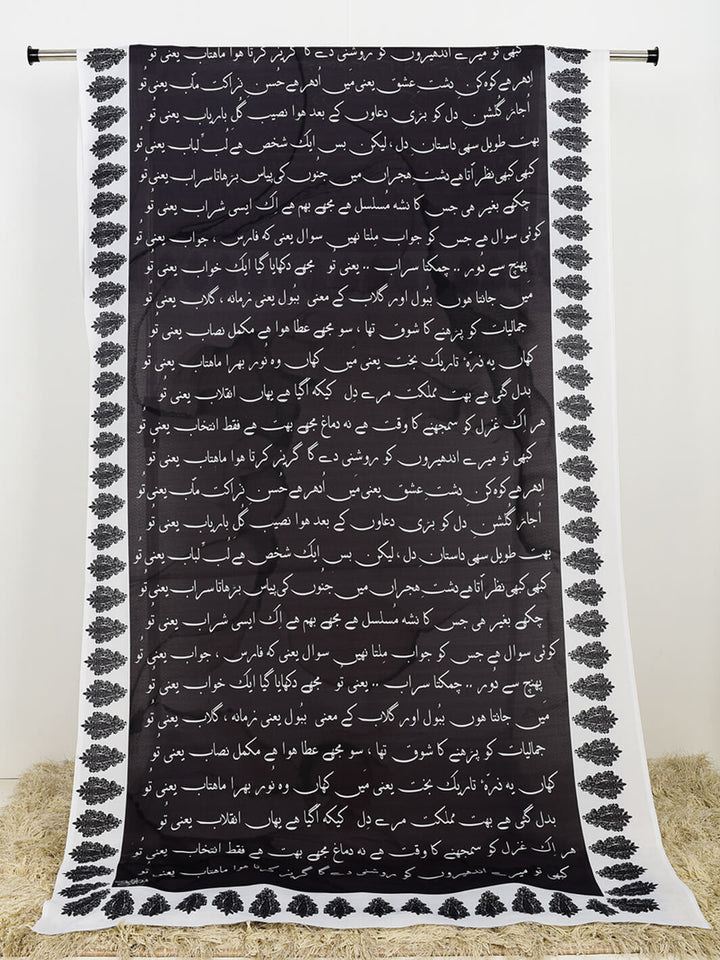 کبھی تو میرے اندھیروں کو روشنی دے گا گریز کرتا ہوا ماہتاب یعنی تُو
اِدھر ہے کوہ کن دشت عشق یعنی میں اُدھر ہے حُسن نزاکت مآب یعنی تُو
اُجاڑ گلشنِ دل کو بڑی دعاوں کے بعد ہوا نصیب گُلِ باریاب یعنی تُو
بہت طویل سہی داستانِ دل ، لیکن بس ایک شخص ہے لُبِّ لباب یعنی تُو
کبھی کبھی نظر آتا ہے دشتِ ہجراں میں جنُوں کی پیاس بڑھاتا سراب یعنی تُو
چکھے بغیر ہی جس کا نشہ مُسلسل ہے مجھے بہم ہے اِک ایسی شراب یعنی تُو
کوئی سوال ہے جس کو جواب مِلتا نہیں سوال یعنی کہ فارس ، جواب یعنی تُو
پہنچ سے دُور .. چمکتا سراب .. یعنی تُو مجھے دکھایا گیا ایک خواب یعنی تُو
میں جانتا ہوں ببُول اور گلاب کے معنی ببُول یعنی زمانہ ، گلاب یعنی تُو
جمالیات کو پڑھنے کا شوق تھا ، سو مجھے عطا ہوا ہے مکمل نصاب یعنی تُو
کہاں یہ ذرّہٴ تاریک بخت یعنی مَیں کہاں وہ نُور بھرا ماہتاب یعنی تُو
بدل گئی ہے بہت مملکت مرے دِل کی کہ آگیا ہے یہاں انقلاب یعنی تُو
ہر اِک غزل کو سمجھنے کا وقت ہے نہ دماغ مجھے بہت ہے فقط انتخاب یعنی تُو
کبھی تو میرے اندھیروں کو روشنی دے گا گریز کرتا ہوا ماہتاب یعنی تُو
اِدھر ہے کوہ کن دشت عشق یعنی میں اُدھر ہے حُسن نزاکت مآب یعنی تُو
اُجاڑ گلشنِ دل کو بڑی دعاوں کے بعد ہوا نصیب گُلِ باریاب یعنی تُو
بہت طویل سہی داستانِ دل ، لیکن بس ایک شخص ہے لُبِّ لباب یعنی تُو
کبھی کبھی نظر آتا ہے دشتِ ہجراں میں جنُوں کی پیاس بڑھاتا سراب یعنی تُو
چکھے بغیر ہی جس کا نشہ مُسلسل ہے مجھے بہم ہے اِک ایسی شراب یعنی تُو
کوئی سوال ہے جس کو جواب مِلتا نہیں سوال یعنی کہ فارس ، جواب یعنی تُو
پہنچ سے دُور .. چمکتا سراب .. یعنی تُو مجھے دکھایا گیا ایک خواب یعنی تُو
میں جانتا ہوں ببُول اور گلاب کے معنی ببُول یعنی زمانہ ، گلاب یعنی تُو
جمالیات کو پڑھنے کا شوق تھا ، سو مجھے عطا ہوا ہے مکمل نصاب یعنی تُو
کہاں یہ ذرّہٴ تاریک بخت یعنی مَیں کہاں وہ نُور بھرا ماہتاب یعنی تُو
بدل گئی ہے بہت مملکت مرے دِل کی کہ آگیا ہے یہاں انقلاب یعنی تُو
ہر اِک غزل کو سمجھنے کا وقت ہے نہ دماغ مجھے بہت ہے فقط انتخاب یعنی تُو
کبھی تو میرے اندھیروں کو روشنی دے گا گریز کرتا ہوا ماہتاب یعنی تُو